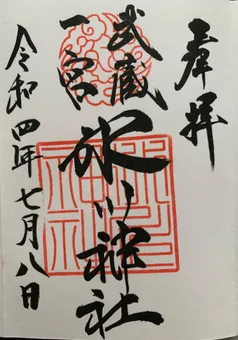 奉拝
武蔵
一宮
氷川神社
令和四年七月八日